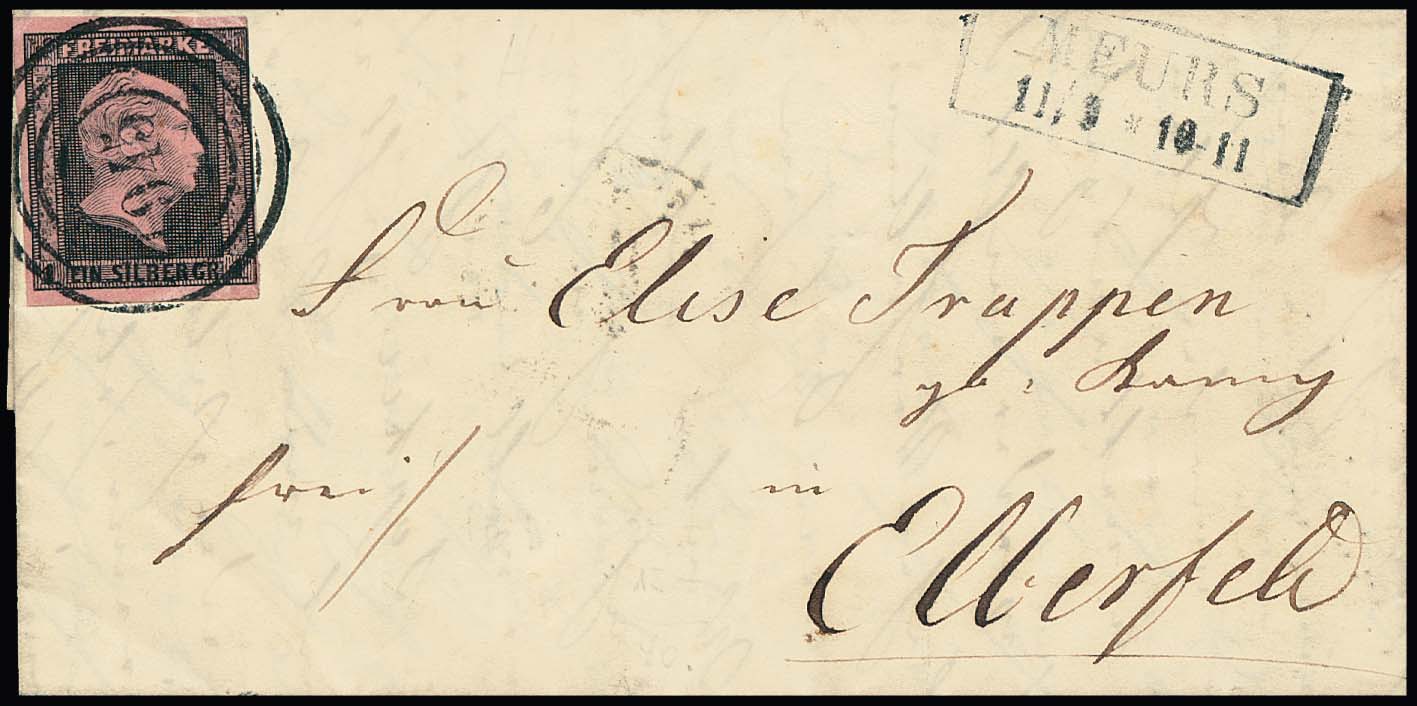 FREIMARKE
945
1 EIN SILBERGR. 1
MEURS
11/3 * 10-11
Frau Elise Trappen
geb.
frei/ in
Elberfeld